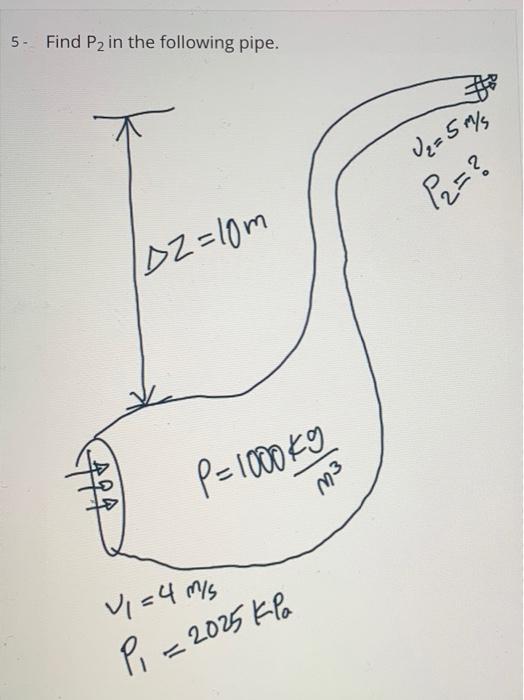 5- Find P₂ in the following pipe.
V₂=5 m/s
P₂=?
ΔZ=10m
ρ=1000 Kg/m³
V₁=4 m/s
P₁=2025 KPa